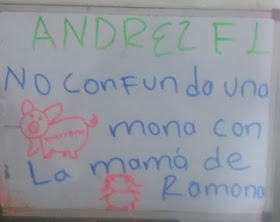 ANDREZ F L
No confundo una
mona con
La mamá de
Ramona